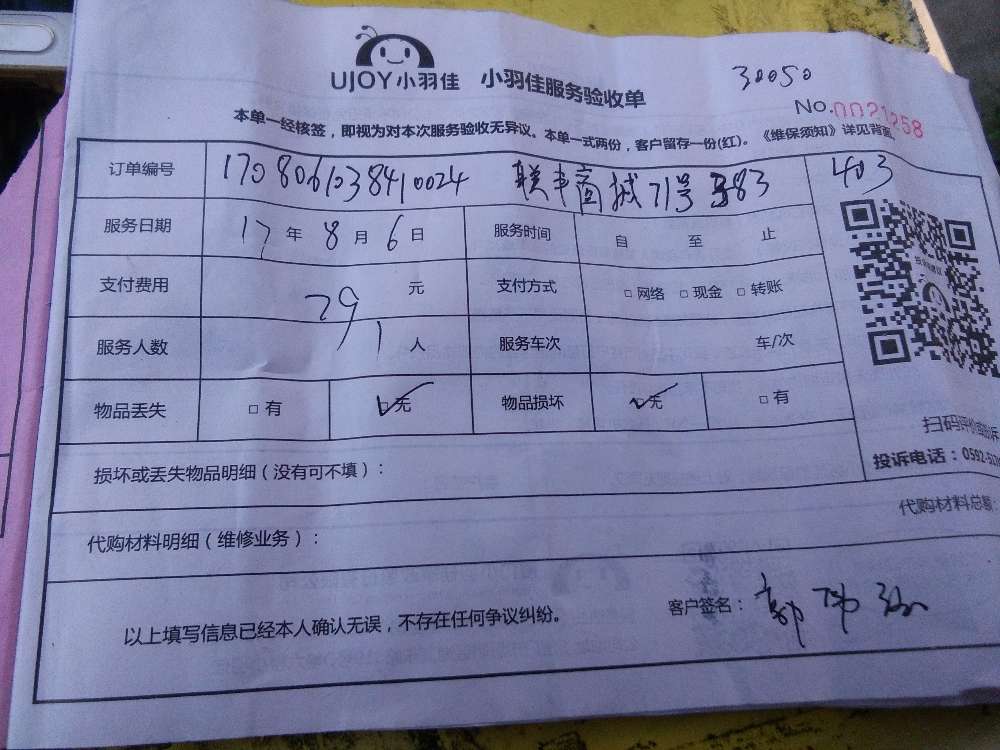 UJOY小羽佳 小羽佳服务验收单
30050
No.0021258
本单一经核签，即视为对本次服务验收无异议。本单一式两份，客户留存一份(红)。《维保须知》详见背面
订单编号 170806103841 0024 联丰商城71号 83 403
服务日期 17 年 8 月 6 日 服务时间 自 至 止
支付费用 79 元 支付方式 □网络 □现金 □转账
服务人数 1 人 服务车次 车/次
物品丢失 □有 ☑无 物品损坏 ☑无 □有
扫码评价
投诉电话：0592-5
损坏或丢失物品明细（没有可不填）：
代购材料总
代购材料明细（维修业务）：
以上填写信息已经本人确认无误，不存在任何争议纠纷。
客户签名：郭